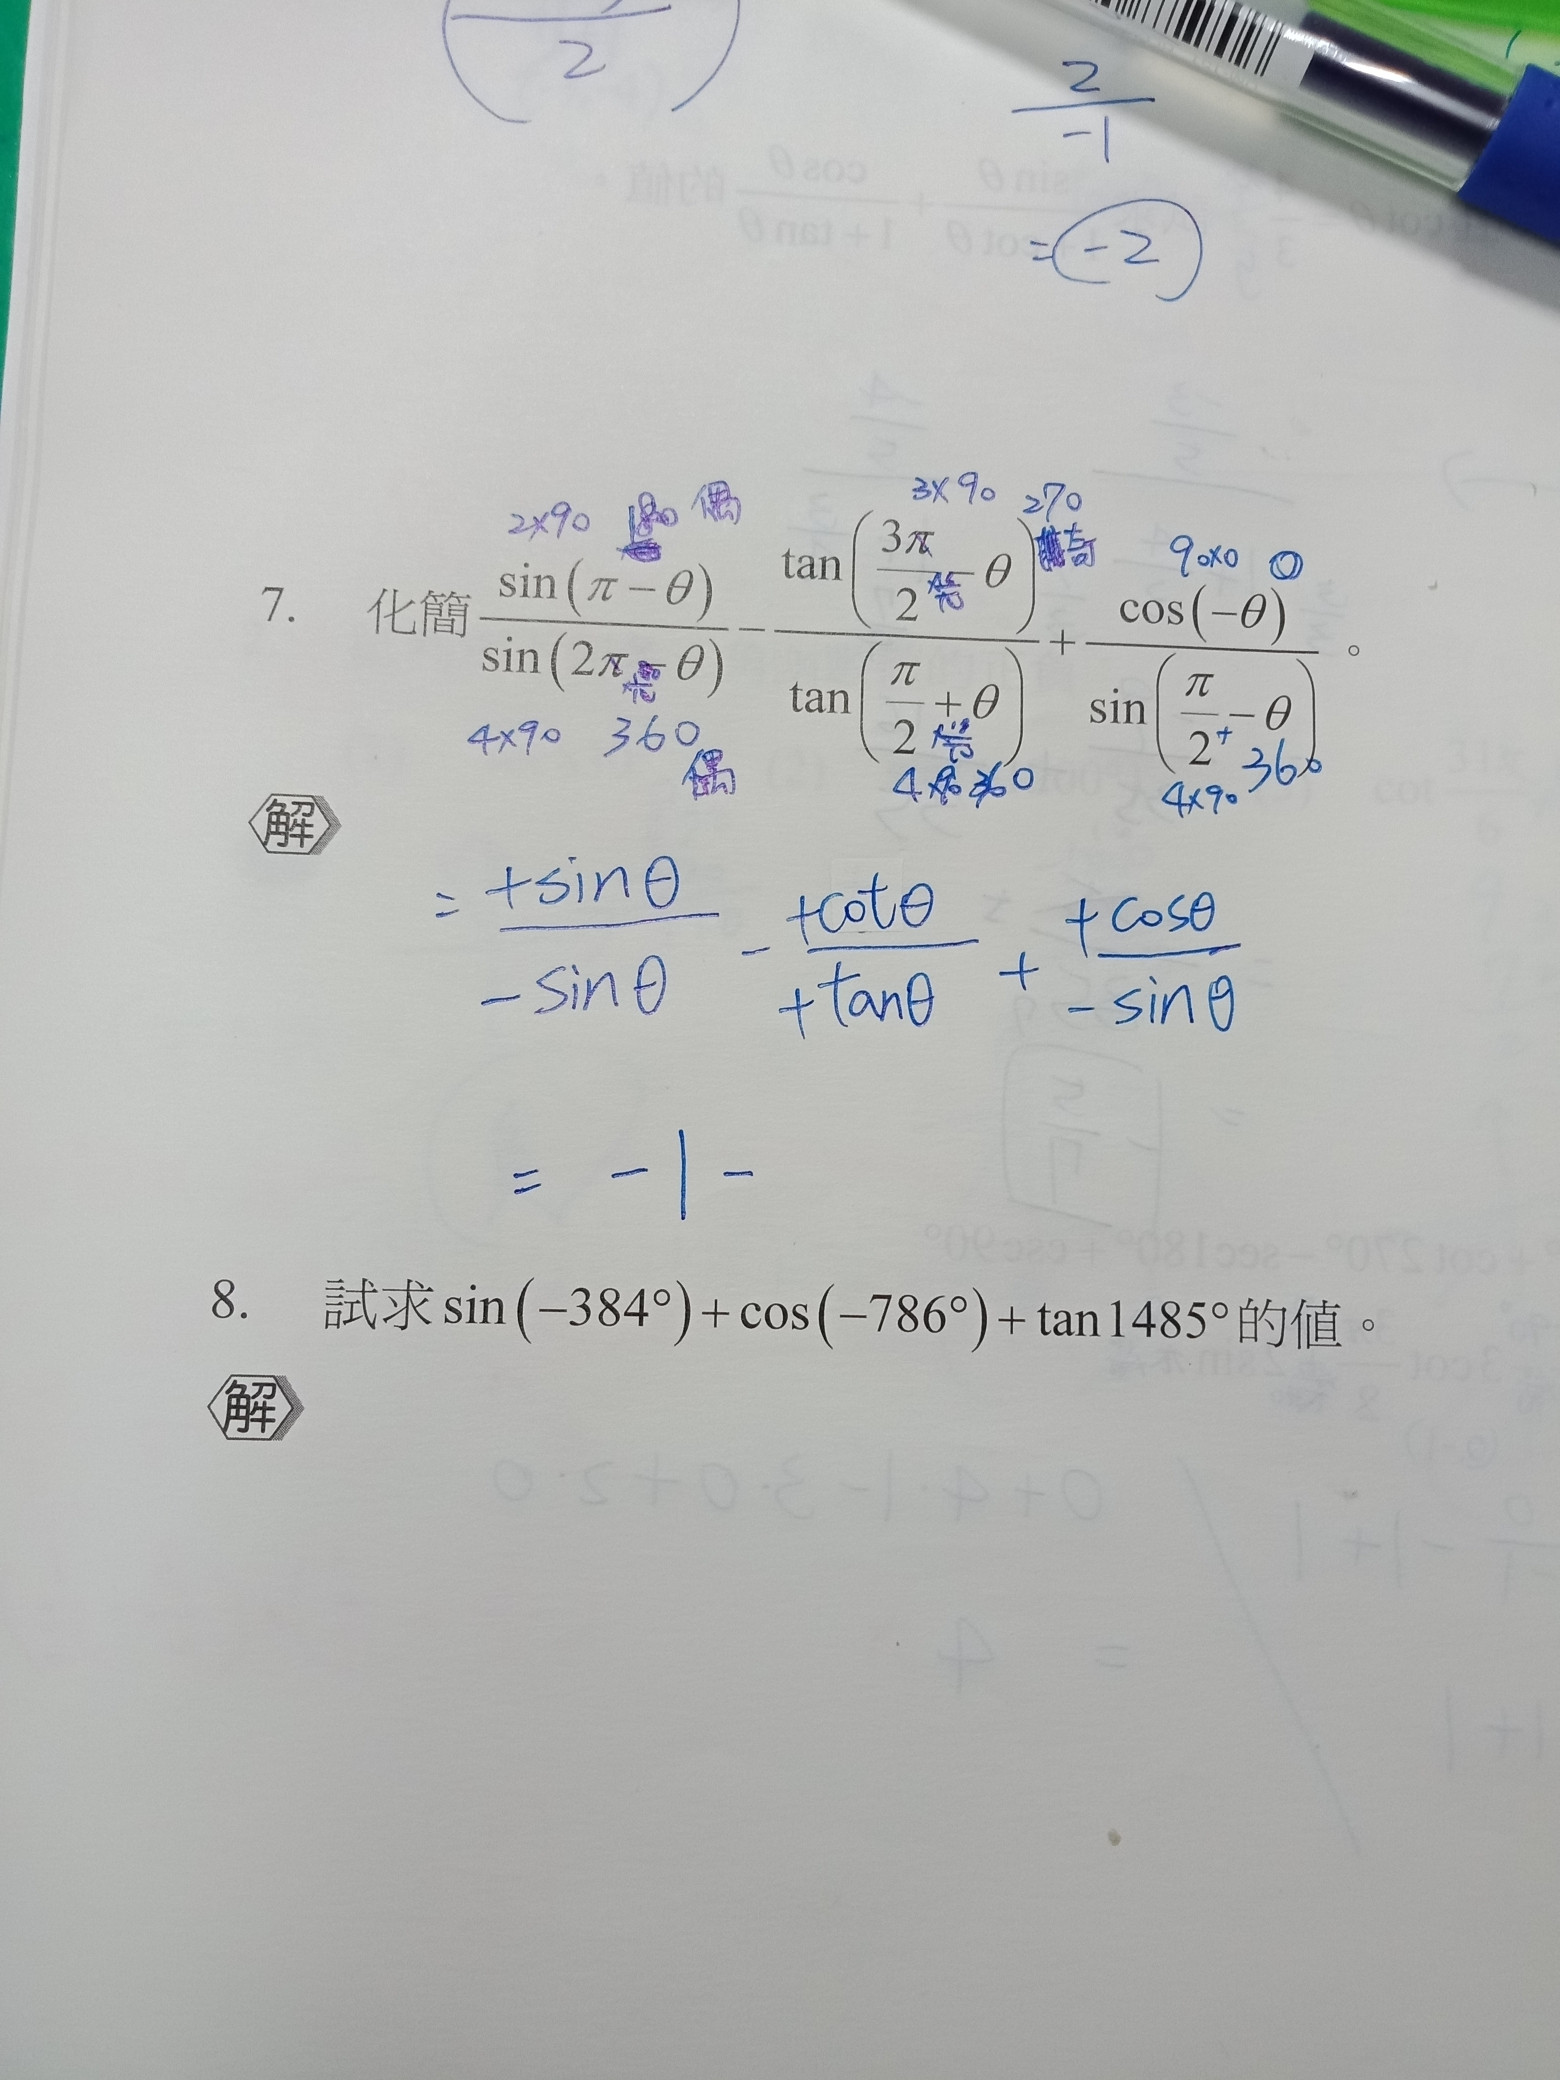 2
2
-1
= -2
2×90 180 偶
3×90 270
奇
90×0 0
7. 化簡 sin(π−θ)/sin(2π−θ) − tan(3π/2−θ)/tan(π/2+θ) + cos(−θ)/sin(π/2−θ)。
4×90 360
偶
4×90 360
4×90 360
解
= +sinθ/-sinθ - +cotθ/+tanθ + +cosθ/-sinθ
= -1-
8. 試求sin(−384°)+cos(−786°)+tan1485°的值。
解